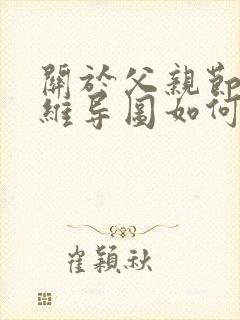 關於父親節
維导圖如何
崔穎秋